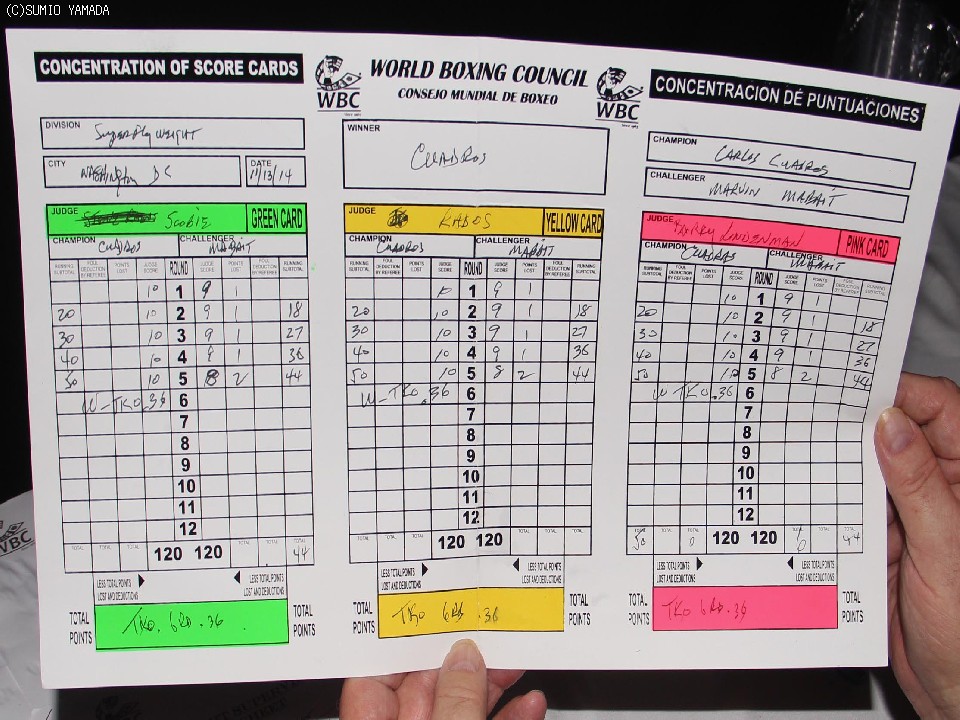 (C)SUMIO YAMADA
CONCENTRATION OF SCORE CARDS
WBC
WORLD BOXING COUNCIL
CONSEJO MUNDIAL DE BOXEO
WBC
CONCENTRACION DE PUNTUACIONES
DIVISION Superflyweight
CITY Washington DC
DATE 11/13/14
WINNER
Cuadros
CHAMPION CARLOS CUADROS
CHALLENGER MARVIN MABAIT
JUDGE Scobie GREEN CARD
CHAMPION CUADROS CHALLENGER MABAIT
RUNNING SUBTOTAL FOUL DEDUCTION BY REFEREE POINTS LOST JUDGE SCORE ROUND JUDGE SCORE POINTS LOST FOUL DEDUCTION BY REFEREE RUNNING SUBTOTAL
10 1 9 1
20 10 2 9 1 18
30 10 3 9 1 27
40 10 4 9 1 36
50 10 5 8 2 44
W-TKO .36 6
7
8
9
10
11
12
TOTAL TOTAL TOTAL 120 120 TOTAL TOTAL TOTAL 44
LESS TOTAL POINTS LOST AND DEDUCTIONS LESS TOTAL POINTS LOST AND DEDUCTIONS
TOTAL POINTS TKO. 6RD .36 TOTAL POINTS
JUDGE KADOS YELLOW CARD
CHAMPION CUADROS CHALLENGER MABAIT
RUNNING SUBTOTAL FOUL DEDUCTION BY REFEREE POINTS LOST JUDGE SCORE ROUND JUDGE SCORE POINTS LOST FOUL DEDUCTION BY REFEREE RUNNING SUBTOTAL
10 1 9 1
20 10 2 9 1 18
30 10 3 9 1 27
40 10 4 9 1 36
50 10 5 8 2 44
W-TKO .36 6
7
8
9
10
11
12
TOTAL TOTAL TOTAL 120 120 TOTAL TOTAL TOTAL
LESS TOTAL POINTS LOST AND DEDUCTIONS LESS TOTAL POINTS LOST AND DEDUCTIONS
TOTAL POINTS TKO 6RD .36 TOTAL POINTS
JUDGE BARRY LINDENMAN PINK CARD
CHAMPION CUADROS CHALLENGER MABAIT
RUNNING SUBTOTAL FOUL DEDUCTION BY REFEREE POINTS LOST JUDGE SCORE ROUND JUDGE SCORE POINTS LOST FOUL DEDUCTION BY REFEREE RUNNING SUBTOTAL
10 1 9 1
20 10 2 9 1 18
30 10 3 9 1 27
40 10 4 9 1 36
50 10 5 8 2 44
W TKO .36 6
7
8
9
10
11
12
TOTAL 50 TOTAL TOTAL 0 120 120 TOTAL 0 TOTAL TOTAL 44
LESS TOTAL POINTS LOST AND DEDUCTIONS LESS TOTAL POINTS LOST AND DEDUCTIONS
TOTAL POINTS TKO 6RD .36 TOTAL POINTS
WBC